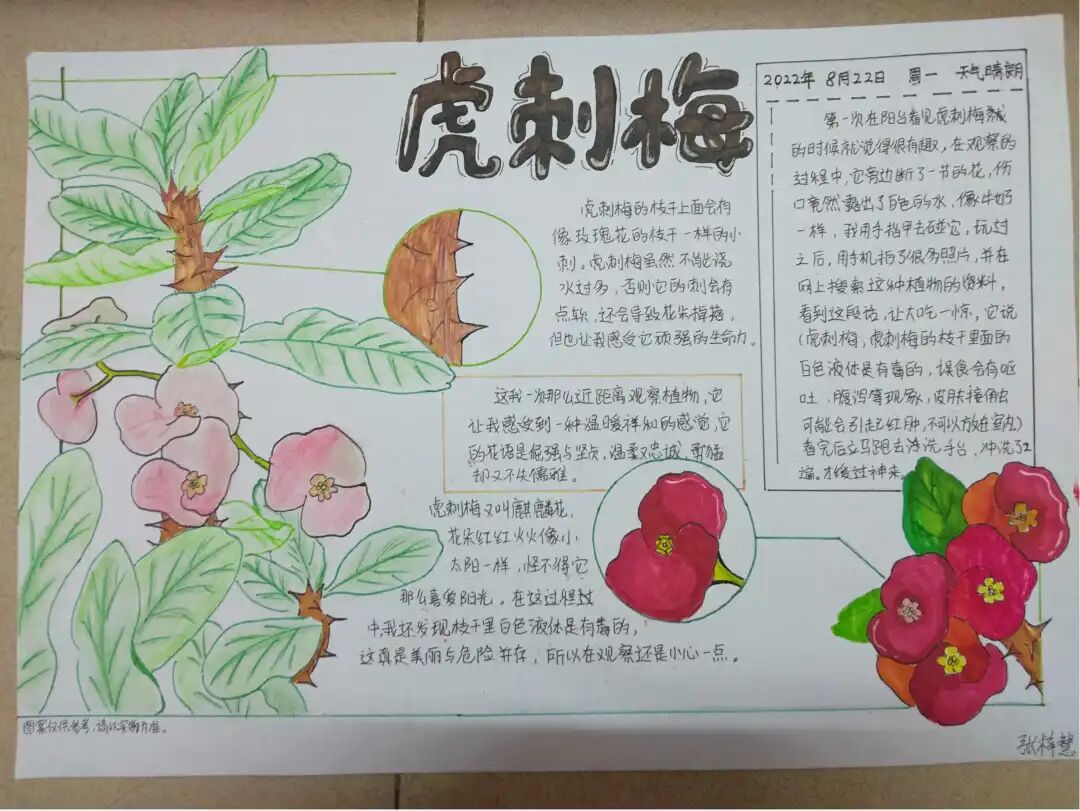 虎刺梅
2022年 8月22日 周一 天气晴朗
第一次在阳台看见虎刺梅
的时候就觉得很有趣，在观察的
过程中，它旁边断了一节的花，伤
口竟然露出了白色的水，像牛奶
一样，我用手指甲去碰它，玩过
之后，用手机拍了很多照片，并在
网上搜索这种植物的资料，
看到这段话，让大吃一惊，它说
(虎刺梅，虎刺梅的枝干里面的
白色液体是有毒的，误食会有呕
吐，腹泻等现象，皮肤接触
可能会引起红肿，不可以放在室内)
看完后立马跑去洗手台，冲洗了2
遍。才缓过神来。
虎刺梅的枝干上面会有
像玫瑰花的枝干一样的小
刺。虎刺梅虽然不能浇
水过多，否则它的刺会有
点软，还会导致花朵掉落，
但也让我感受它顽强的生命力。
这我一次那么近距离观察植物，它
让我感受到一种温暖祥和的感觉，它
的花语是倔强与坚贞，温柔又忠诚，勇猛
却又不失儒雅。
虎刺梅又叫麒麟花，
花朵红红火火像小
太阳一样，怪不得它
那么喜爱阳光。在这过程过
中，我还发现枝干里白色液体是有毒的，
这真是美丽与危险并存，所以在观察还是小心一点。
图案仅供参考，请以实物为准。
张梓慧